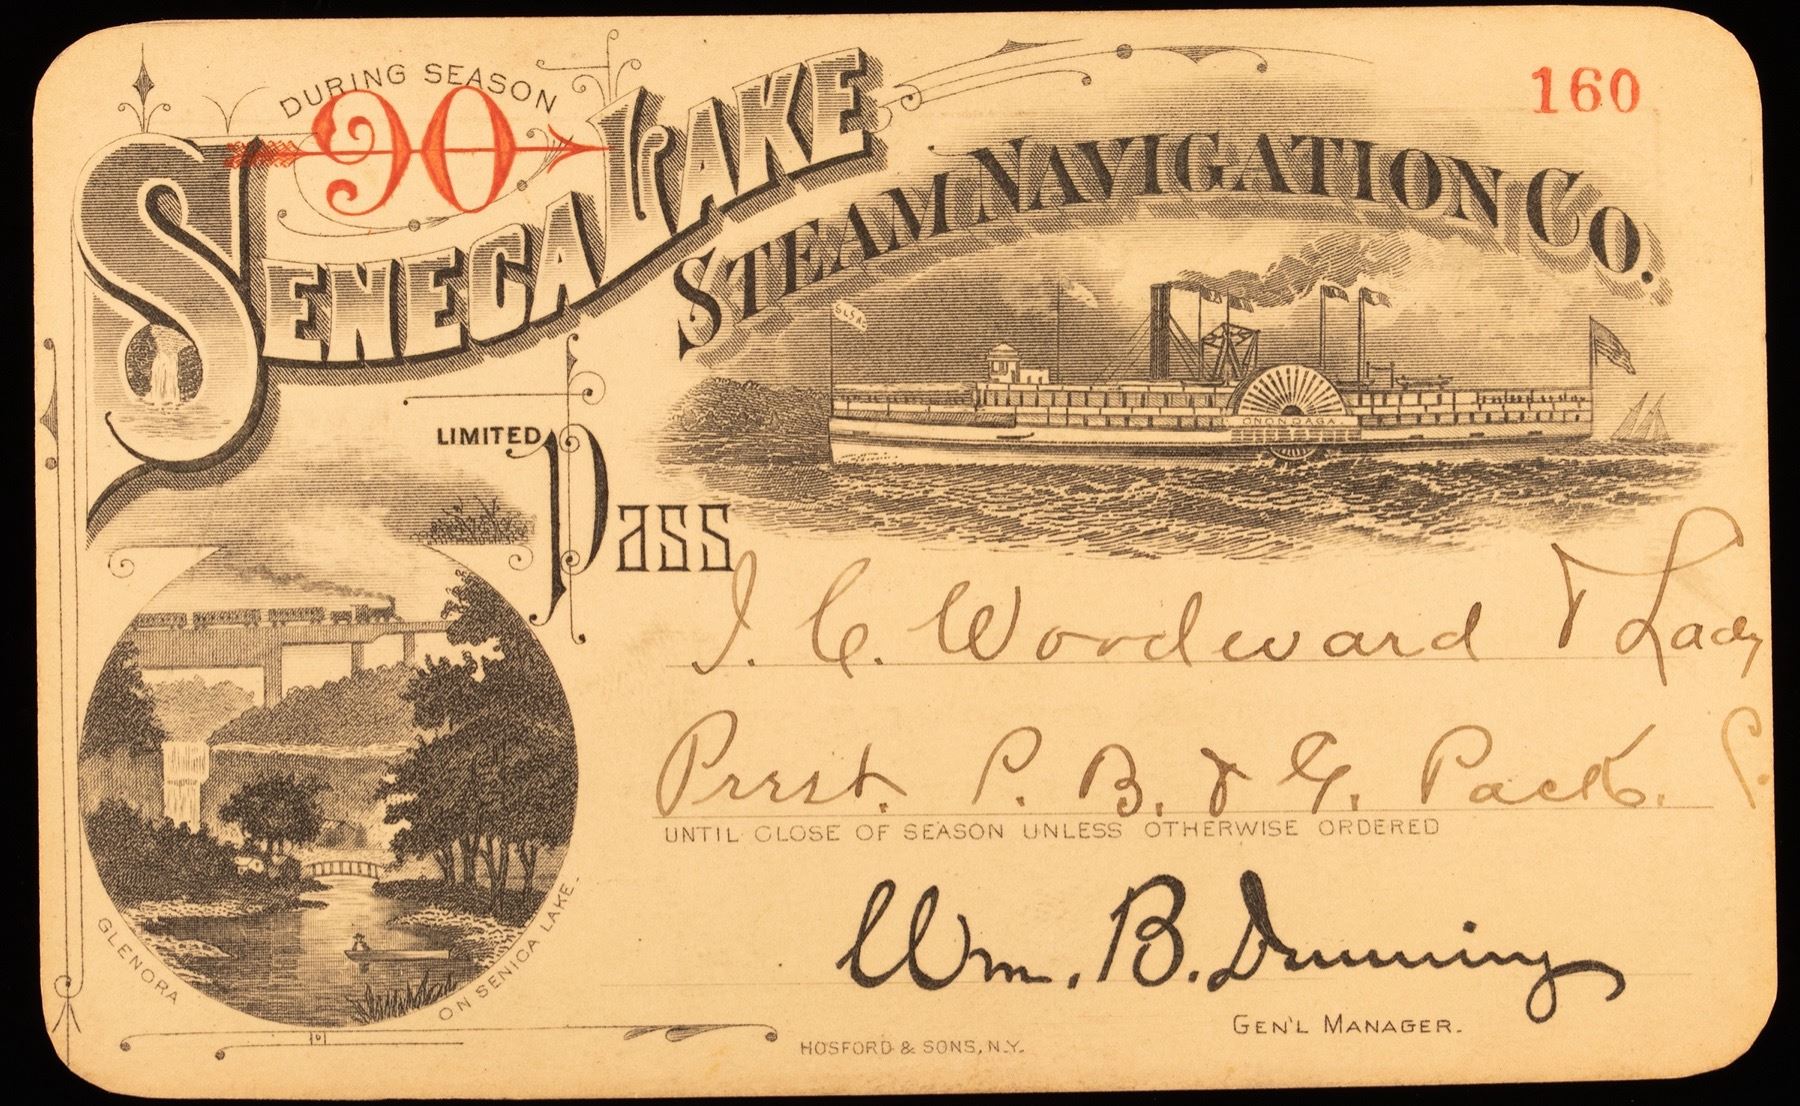 DURING SEASON
90
160
SENECA LAKE
STEAM NAVIGATION CO.
ONONDAGA
LIMITED
Pass
I. C. Woodward & Lady
Prest. P. B. & G. Pack. C.
UNTIL CLOSE OF SEASON UNLESS OTHERWISE ORDERED
Wm. B. Dunning
GEN'L MANAGER.
GLENORA
ON SENICA LAKE.
HOSFORD & SONS, N.Y.